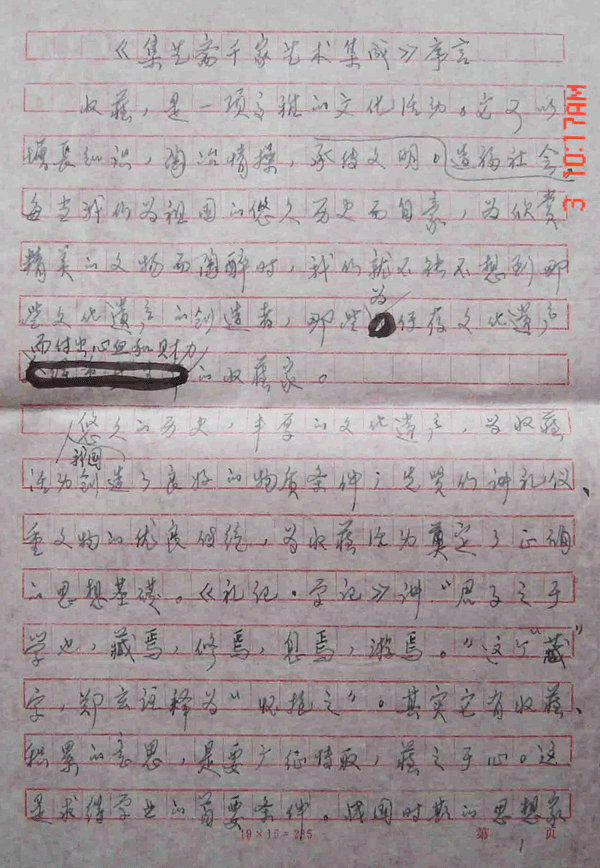 《集艺斋千家艺术集成》序言
收藏，是一项高雅的文化活动。它可以
增长知识，陶冶情操，承传文明。造福社会。
每当我们为祖国的悠久历史而自豪，为欣赏
精美的文物而陶醉时，我们就不能不想到那
些文化遗产的创造者，那些为保存文化遗产
而付出心血和财力
的收藏家。
悠久的历史，丰厚的文化遗产，为收藏
我国
活动创造了良好的物质条件；先贤们讲礼仪、
重文物的优良传统，为收藏活动奠定了正确
的思想基础。《礼记·学记》讲“君子之于
学也，藏焉，修焉，息焉，游焉。”这个“藏”
字，郑玄注释为“怀抱之”。其实它有收藏、
积累的意思，是要广征博取，藏之于心。这
是求得学业的首要条件。战国时期的思想家
19×15=285
第 1 页
3 10:17AM